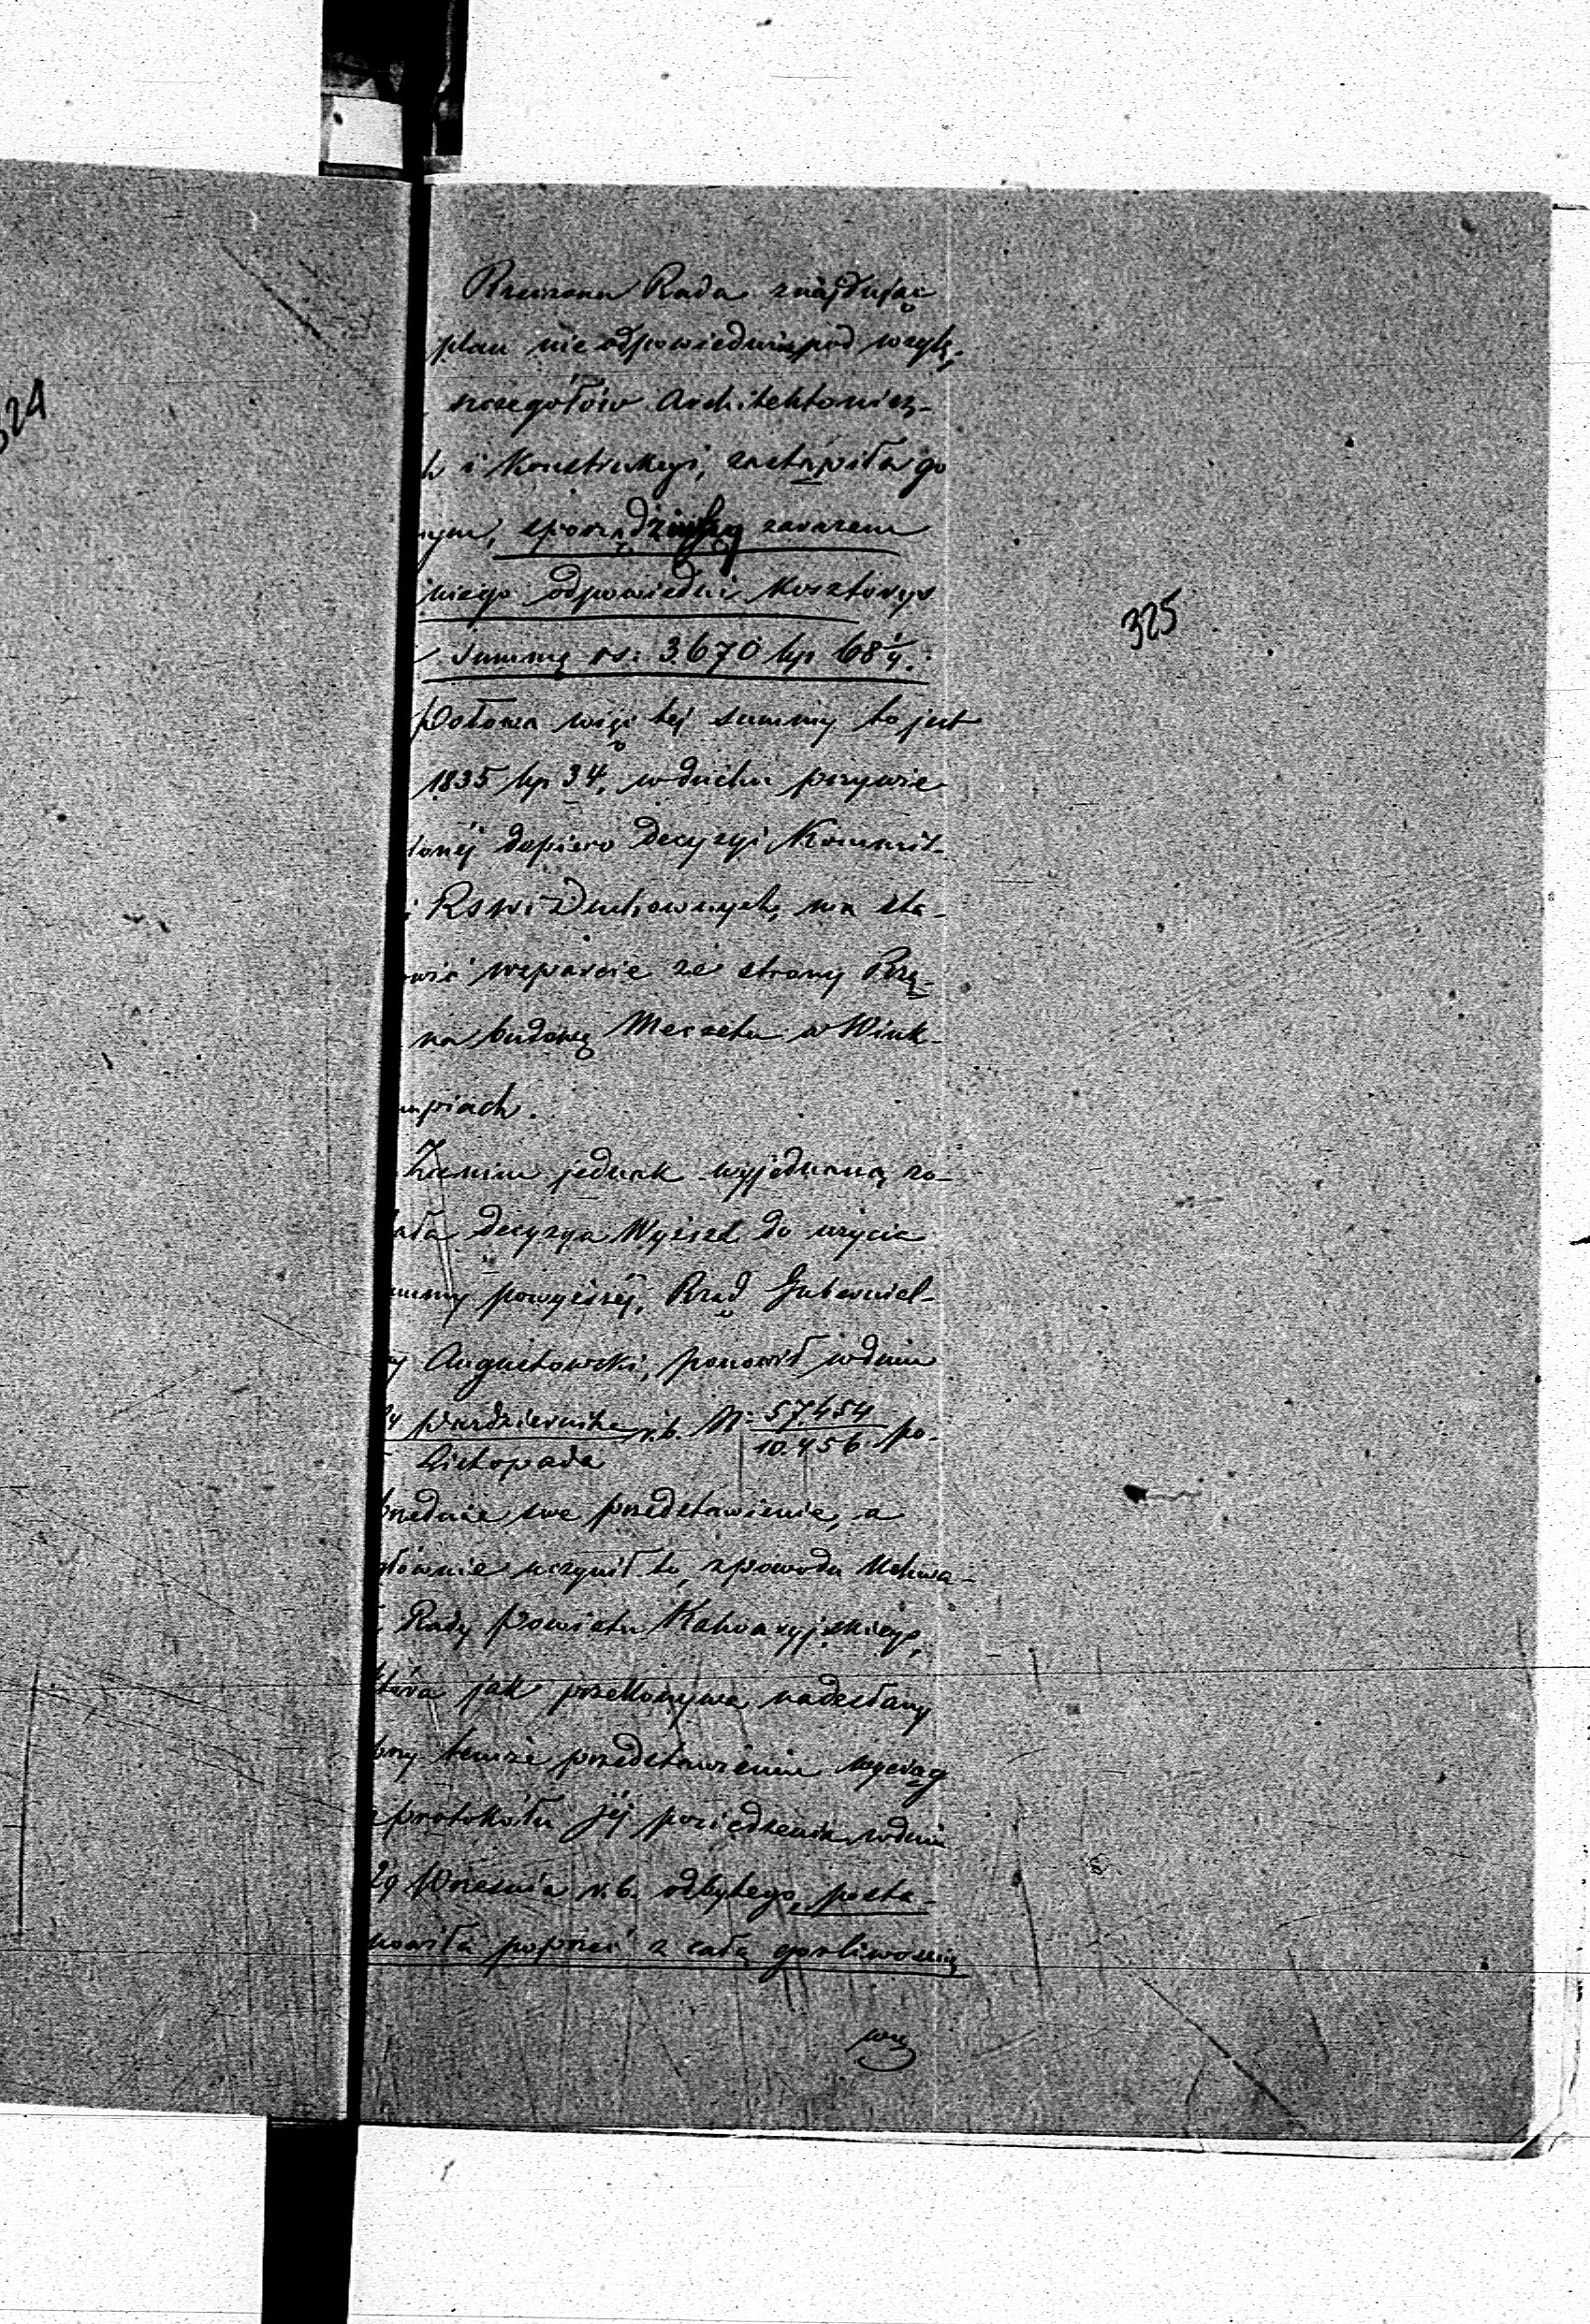 324
Rzeczona Rada znajdując
plan nieodpowiednim pod wzglę-
szczegółów Architektonicz-
h i Konstrukcyi, zastąpiła go
nym, sporządziwszy zarazem
niego odpowiedni Kosztorys
summę rs: 3670 kp 68 1/4.
325
Połowa więc tej summy to jest
1835 kp 34, w duchu przywie-
onéj dopiero decyzyi Kommis-
i RSWiDuchownych, ma sta-
owić wsparcie ze strony Rzą-
na budowę Meczetu w Wink-
piach.
Zanim jednak wyjednaną zo-
ała decyzya Wyższa do użycia
ummy powyższéj, Rząd Gubernial-
y Augustowski, ponowił w dniu
24 Października / Listopada r.b. N: 57454/10.456 po-
przednie swe przedstawienie, a
głównie uczynił to, z powodu Uchwa-
Rady Powiatu Kalwaryjskiego,
która jak przekonywa nadesłany
przy temże przedstawieniu wyciąg
z protokółu jéj posiedzenia w dniu
29 Września r.b. odbytego, posta-
nowiła poprzeć z całą gorliwością